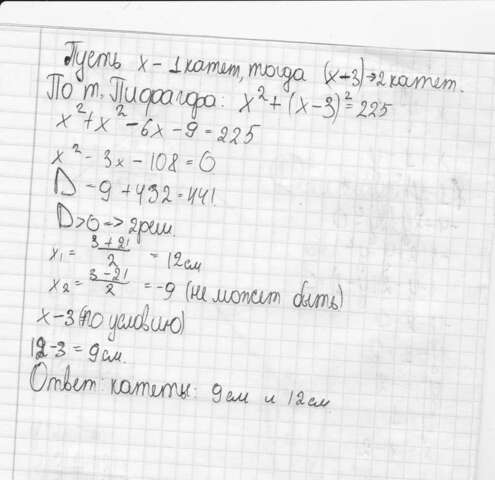 Пусть x - 1 катет, тогда (x-3) → 2 катет.
По т. Пифагора: x² + (x-3)² = 225
x² + x² - 6x - 9 = 225
x² - 3x - 108 = 0
D - 9 + 432 = 441
D > 0 => 2 реш.
x₁ = \frac{3+21}{2} = 12 см
x₂ = \frac{3-21}{2} = -9 (не может быть)
x - 3 (по условию)
12 - 3 = 9 см.
Ответ: катеты: 9 см и 12 см